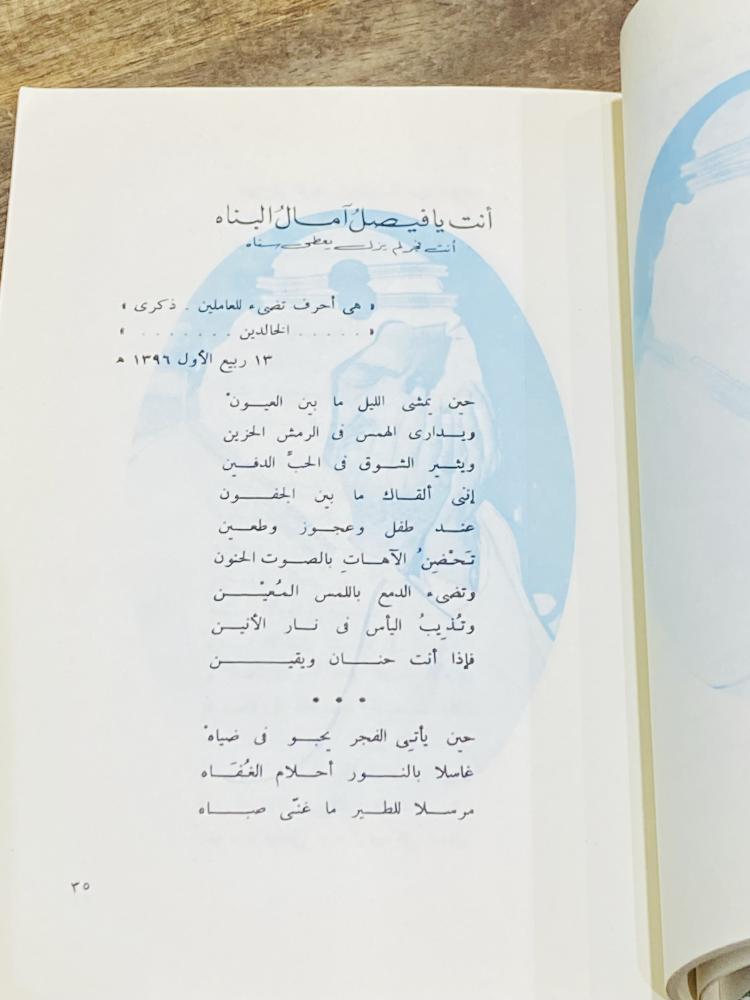 أنت يا فيصلُ آمالُ البناه
أنت فجر لم يزل يعطى سناه
« هى أحرف تضىء للعاملين . ذكرى »
« . . . . . الخالدين . . . . . . . »
١٣ ربيع الأول ١٣٩٦ هـ
حين يمشى الليل ما بين العيونْ
ويدارى الهمس فى الرمش الحزين
ويثير الشوق فى الحبِّ الدفين
إننى ألقاك ما بين الجفون
عند طفل وعجوز وطعين
تَحْضِنُ الآهاتِ بالصوت الحنون
وتضىء الدمع باللمس المُعيْن
وتُذِيبُ اليأس فى نار الأنين
فإذا أنت حنان ويقين
* * *
حين يأتى الفجر يحبو فى ضياهْ
غاسلا بالنور أحلام الغُفَاه
مرسلا للطير ما غنّى صباه
٣٥